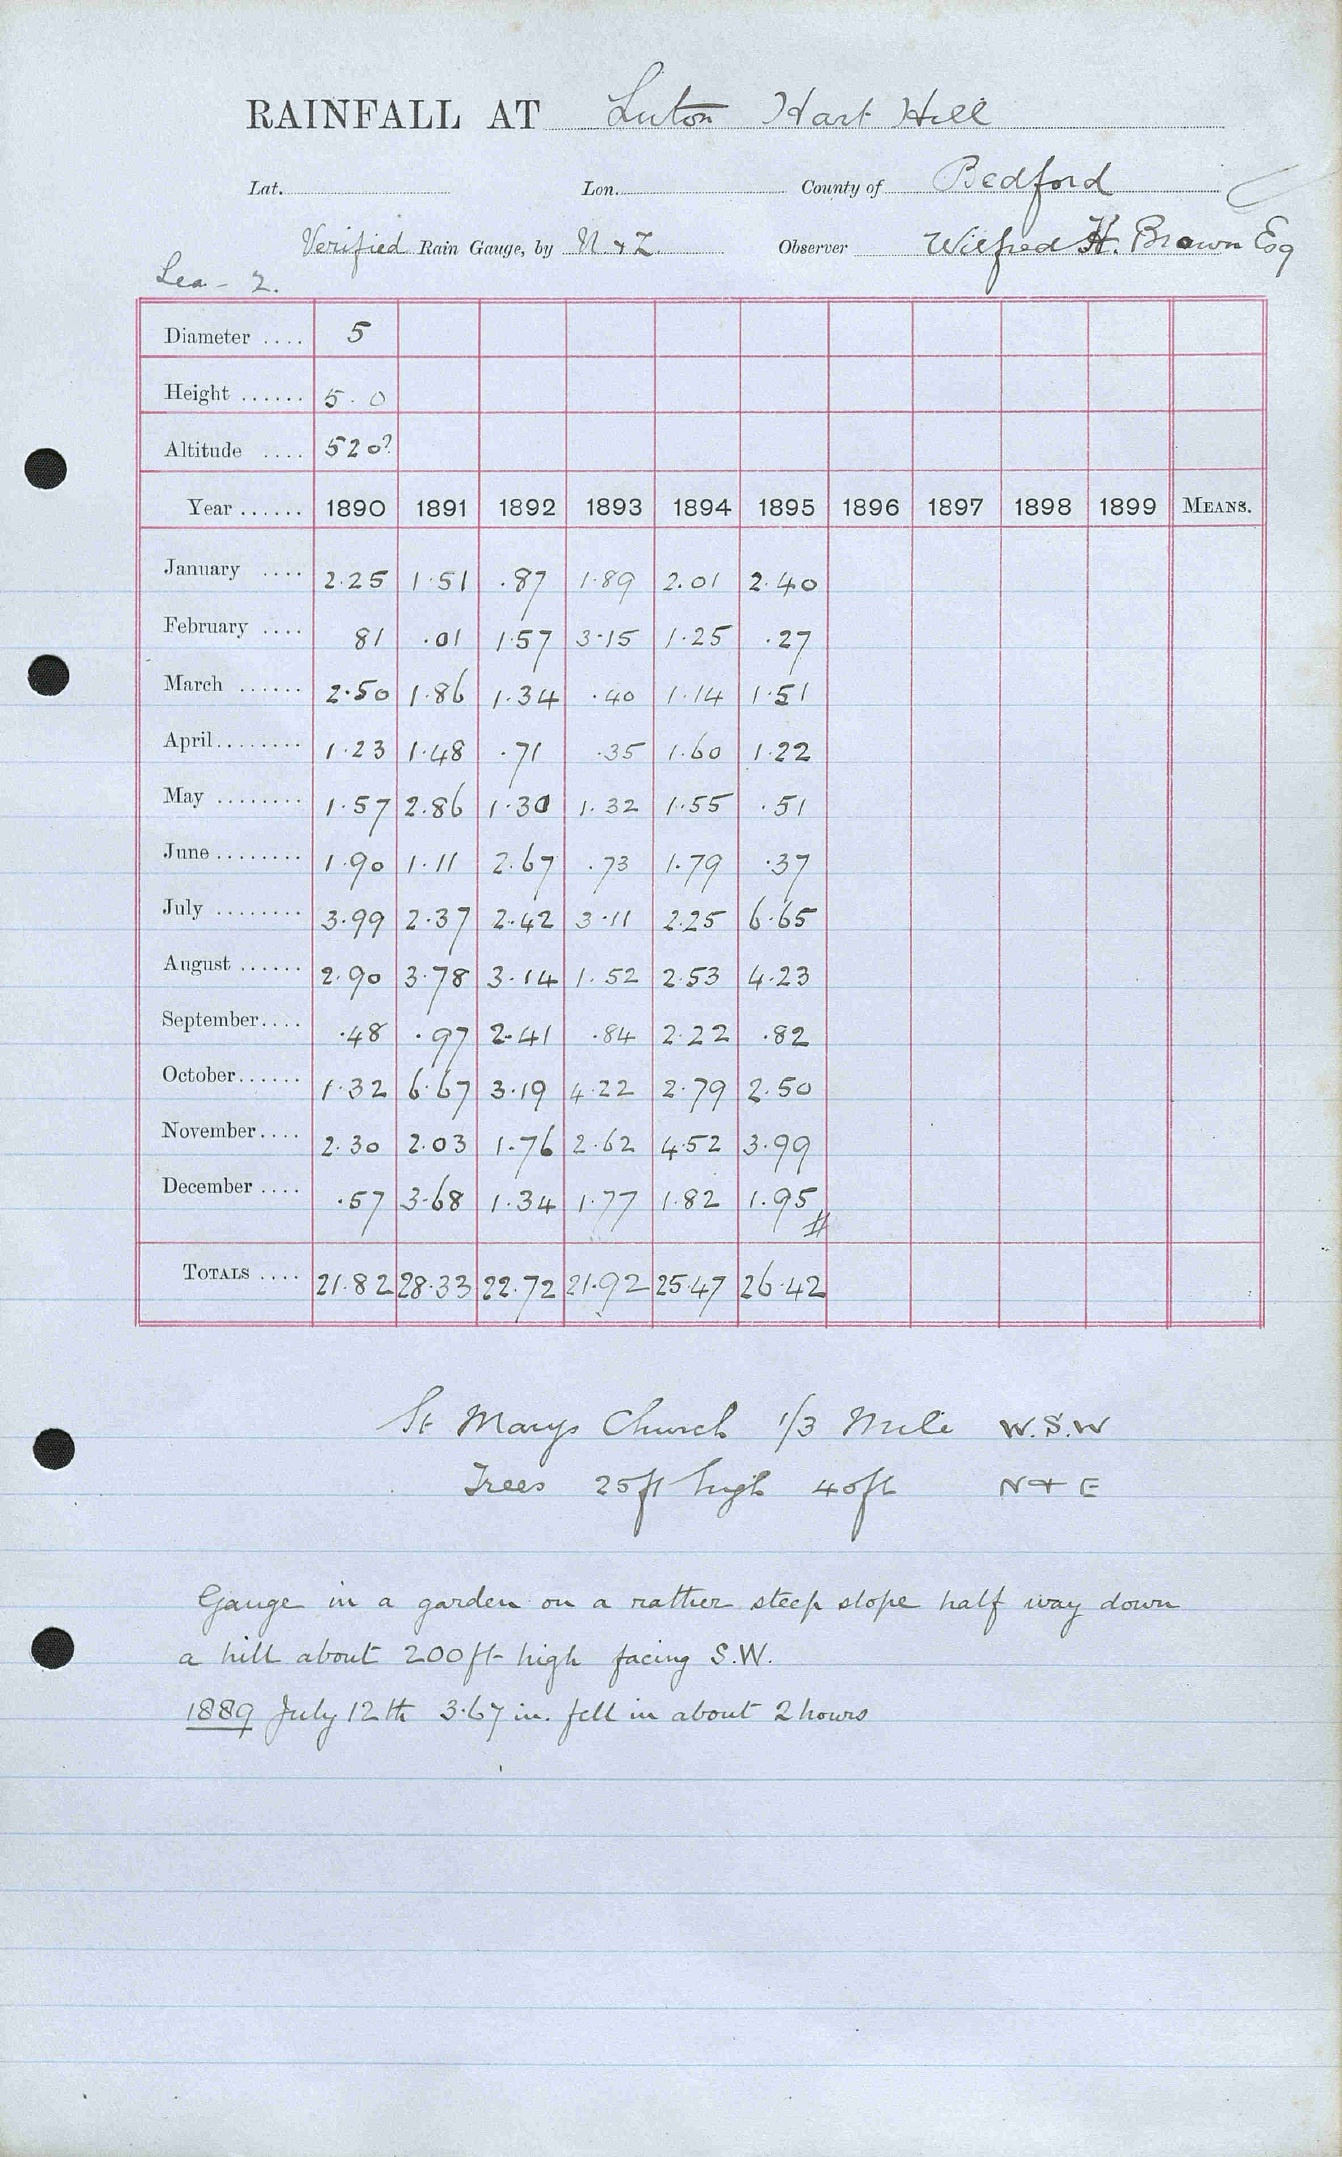 RAINFALL AT Luton Hart Hill
Lat. Lon. County of Bedford
Verified Rain Gauge, by N. & Z. Observer Wilfred H. Brown Esq
Lea - 2.
Diameter .... 5
Height ...... 5. 0
Altitude .... 520?
Year ...... 1890 1891 1892 1893 1894 1895 1896 1897 1898 1899 MEANS.
January .... 2.25 1.51 .87 1.89 2.01 2.40
February .... 81 .01 1.57 3.15 1.25 .27
March ...... 2.50 1.86 1.34 .40 1.14 1.51
April........ 1.23 1.48 .71 .35 1.60 1.22
May ........ 1.57 2.86 1.30 1.32 1.55 .51
June ........ 1.90 1.11 2.67 .73 1.79 .37
July ........ 3.99 2.37 2.42 3.11 2.25 6.65
August ...... 2.90 3.78 3.14 1.52 2.53 4.23
September.... .48 .97 2.41 .84 2.22 .82
October...... 1.32 6.67 3.19 4.22 2.79 2.50
November.... 2.30 2.03 1.76 2.62 4.52 3.99
December .... .57 3.68 1.34 1.77 1.82 1.95
TOTALS .... 21.82 28.33 22.72 21.92 25.47 26.42
St Marys Church 1/3 Mile W.S.W
Trees 25ft high 40ft N & E
Gauge in a garden on a rather steep slope half way down
a hill about 200ft high facing S.W.
1889 July 12th 3.67 in. fell in about 2 hours